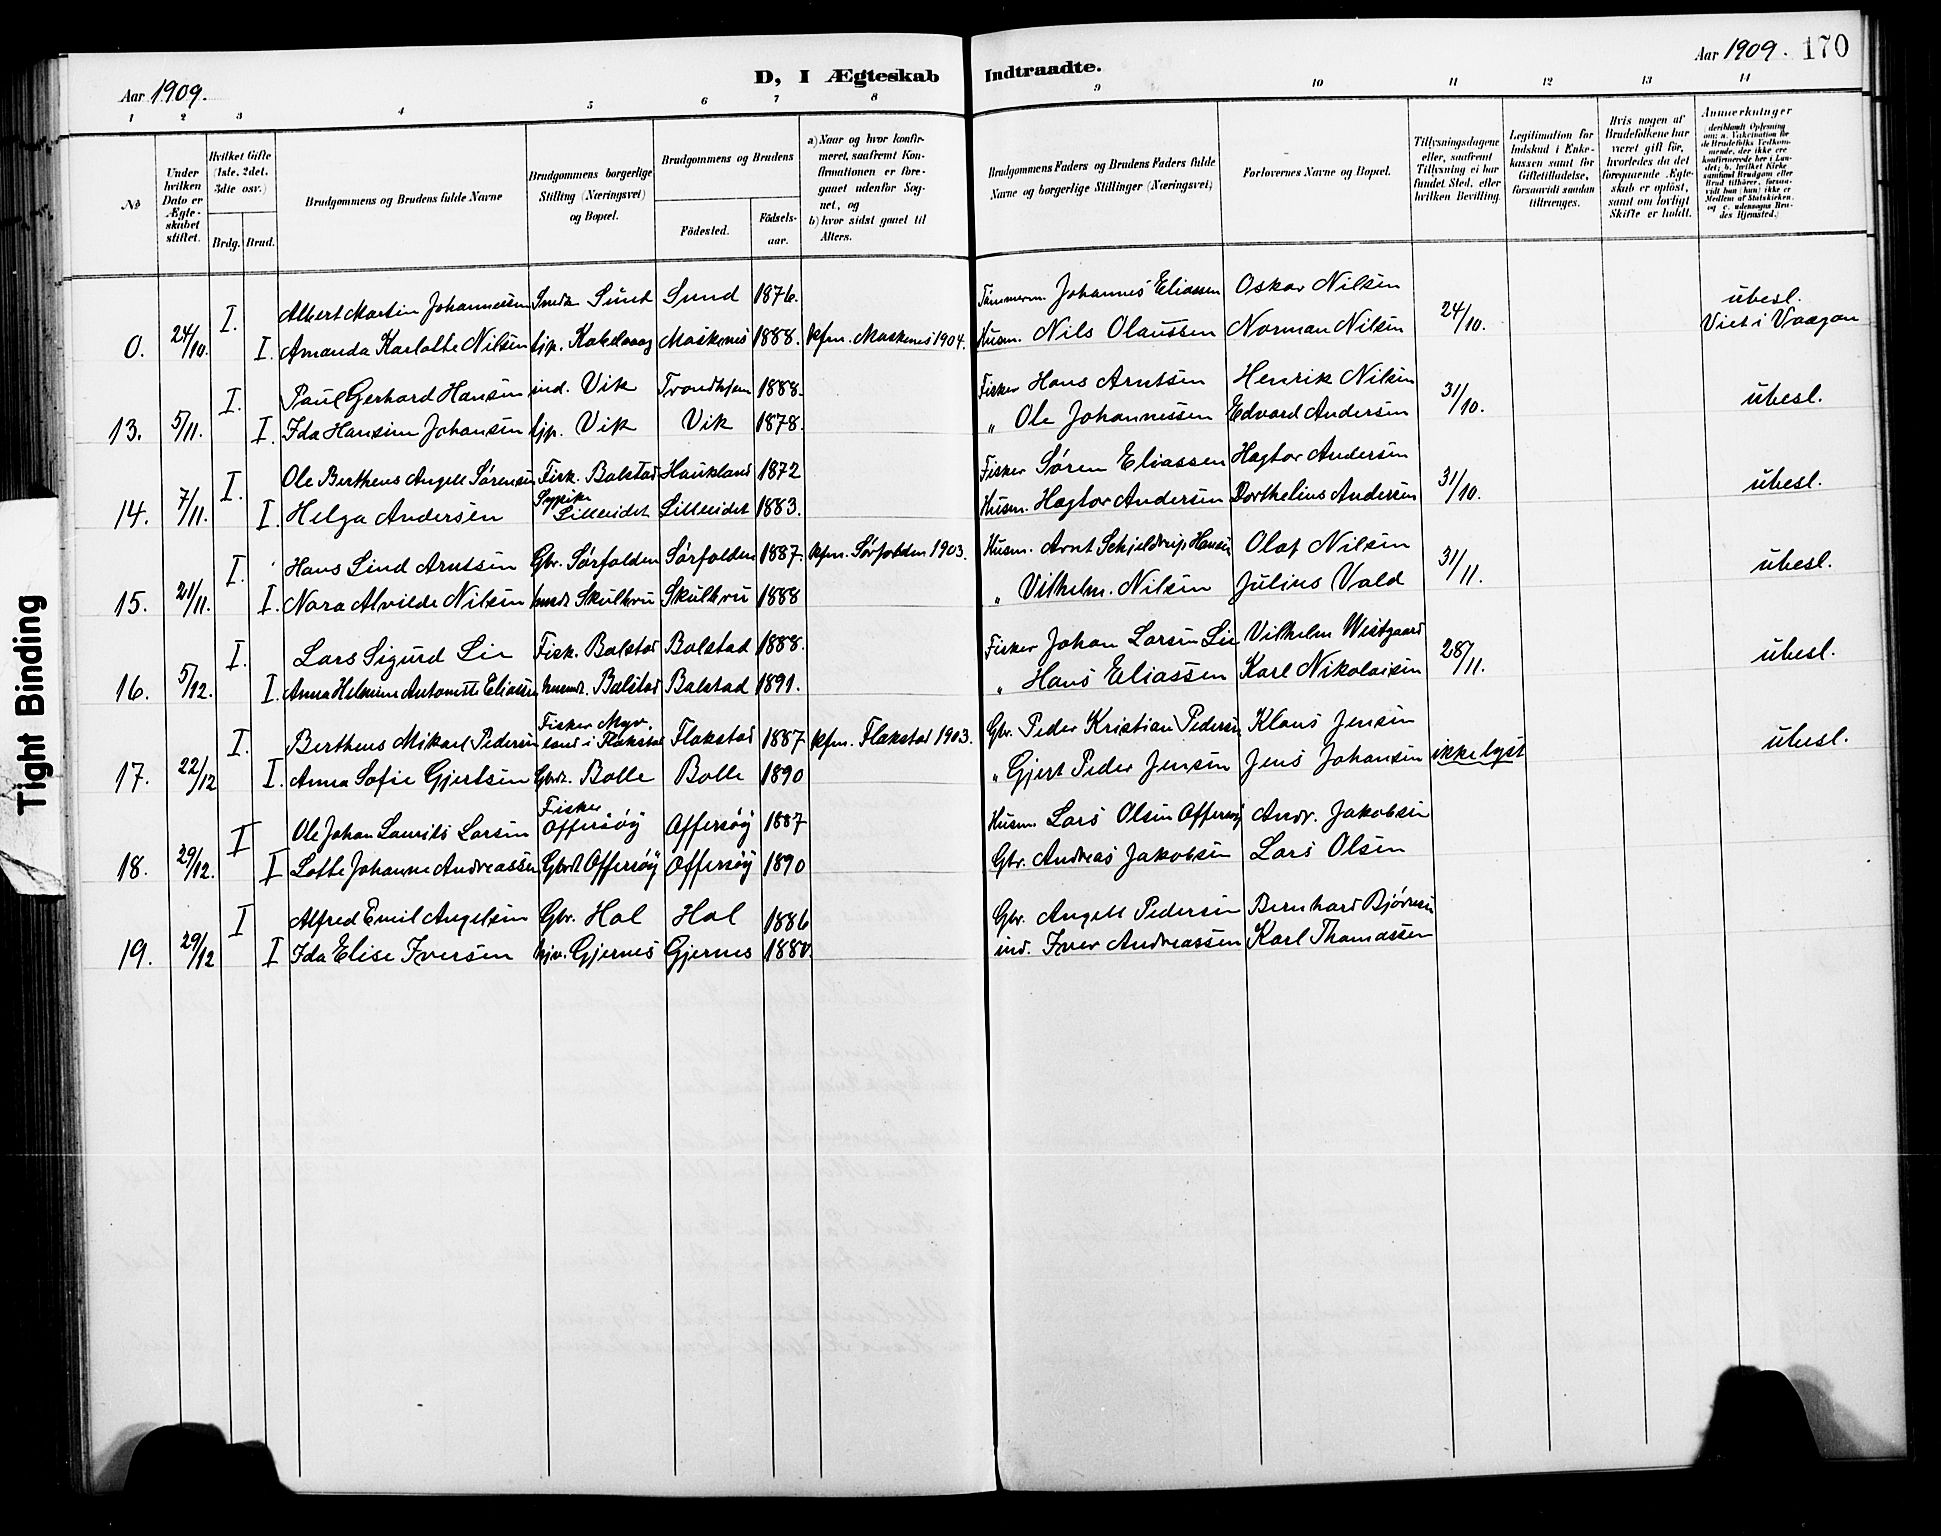 Aar 1909.
D, I Ægteskab Indtraadte.
Aar 1909. 170
1 2 3 4 5 6 7 8 9 10 11 12 13 14
No
Under hvilken Dato er Ægteskabet stiftet.
Hvilket Gifte (1ste, 2det, 3die osv.)
Brdg. Brud.
Brudgommens og Brudens fulde Navne
Brudgommens borgerlige Stilling (Næringsvei) og Bopæl.
Brudgommens og Brudens
Födested. Födselsaar.
a) Naar og hvor konfirmeret, saafremt Konfirmationen er foregaaet udenfor Sognet, og
b) hvor sidst gaaet til Alters.
Brudgommens Faders og Brudens Faders fulde Navne og borgerlige Stillinger (Næringsvei)
Forlovernes Navne og Bopæl.
Tillysningsdagene eller, saafremt Tillysning ei har fundet Sted, efter hvilken Bevilling.
Legitimation for Indskud i Enkekassen samt for Giftetilladelse, forsaavidt saadan tiltrænges.
Hvis nogen af Brudefolkene har været gift för, hvorledes da det foregaaende Ægteskab er oplöst, samt om lovligt Skifte er holdt.
Anmærkninger
I. Albert Martin Johannessen Smed Sund Sund 1876. Tømmerm. Johannes Eliassen Oskar Nilsen ubesl.
0. 24/10. I. Amanda Karlotte Nilsen tjp. Kakelvaag Moskenes 1888. Kfm. Moskenes 1904. Husm. Nils Olaussen Norman Nilsen 24/10. Viet i Vaagan
I. Paul Gerhard Hansen ind. Vik Trondhjem 1888. Fisker Hans Arntsen Henrik Nilsen
13. 5/11. I. Ida Hansine Johansen tjp. Vik Vik 1878. " Ole Johannessen Edvard Andersen 31/10. ubesl.
I. Ole Berthens Angell Sørensen Fisk. Balstad Haukland 1872 Fisker Søren Eliassen Hagtor Andersen
14. 7/11. I. Helga Andersen Sypike Lilleeidet Lilleeidet 1883. Husm. Hagtor Andersen Dorthelius Andersen 31/10. ubesl.
I. Hans Lind Arntsen Gbr. Sørfolden Sørfolden 1887. Kfm. Sørfolden 1903. Husm. Arnt Schjeldrup Hansen Olaf Nilsen
15. 21/11. I. Nora Alvilde Nilsen Skulbru Skulbru 1888 " Vilhelm. Nilsen Julius Vold 31/11. ubesl.
I. Lars Sigurd Lie Fisk. Balstad Balstad 1888. Fisker Johan Larsen Lie Vilhelm Westgaard
16. 5/12. I. Anna Helmine Antonette Eliassen Balstad Balstad 1891. " Hans Eliassen Karl Nikolaisen 28/11. ubesl.
I. Berthens Mikael Pedersen Fisker Myrland i Flakstad Flakstad 1887 Kfm. Flakstad 1903. Gbr. Peder Kristian Pedersen Klaus Jensen
17. 22/12 I. Anna Sofie Gjertsen Gbrd. Bolle Bolle 1890 " Gjert Peder Jensen Jens Johansen ikke lyst ubesl.
I Ole Johan Laurits Larsen Fisker Offersøy Offersøy 1887 Husm. Lars Olsen Offersøy Andr. Jakobsen
18. 29/12. I Lotte Johanne Andreassen Gbrd. Offersøy Offersøy 1890 Gbr. Andreas Jakobsen Lars Olsen
I Alfred Emil Angelsen Gbr. Hol Hol 1886 Gbr. Angell Pedersen Bernhard Bjørnsen
19. 29/12 I Ida Elise Iversen Gjernes Gjernes 1880. ind. Iver Andreassen Karl Thomassen
Tight Binding